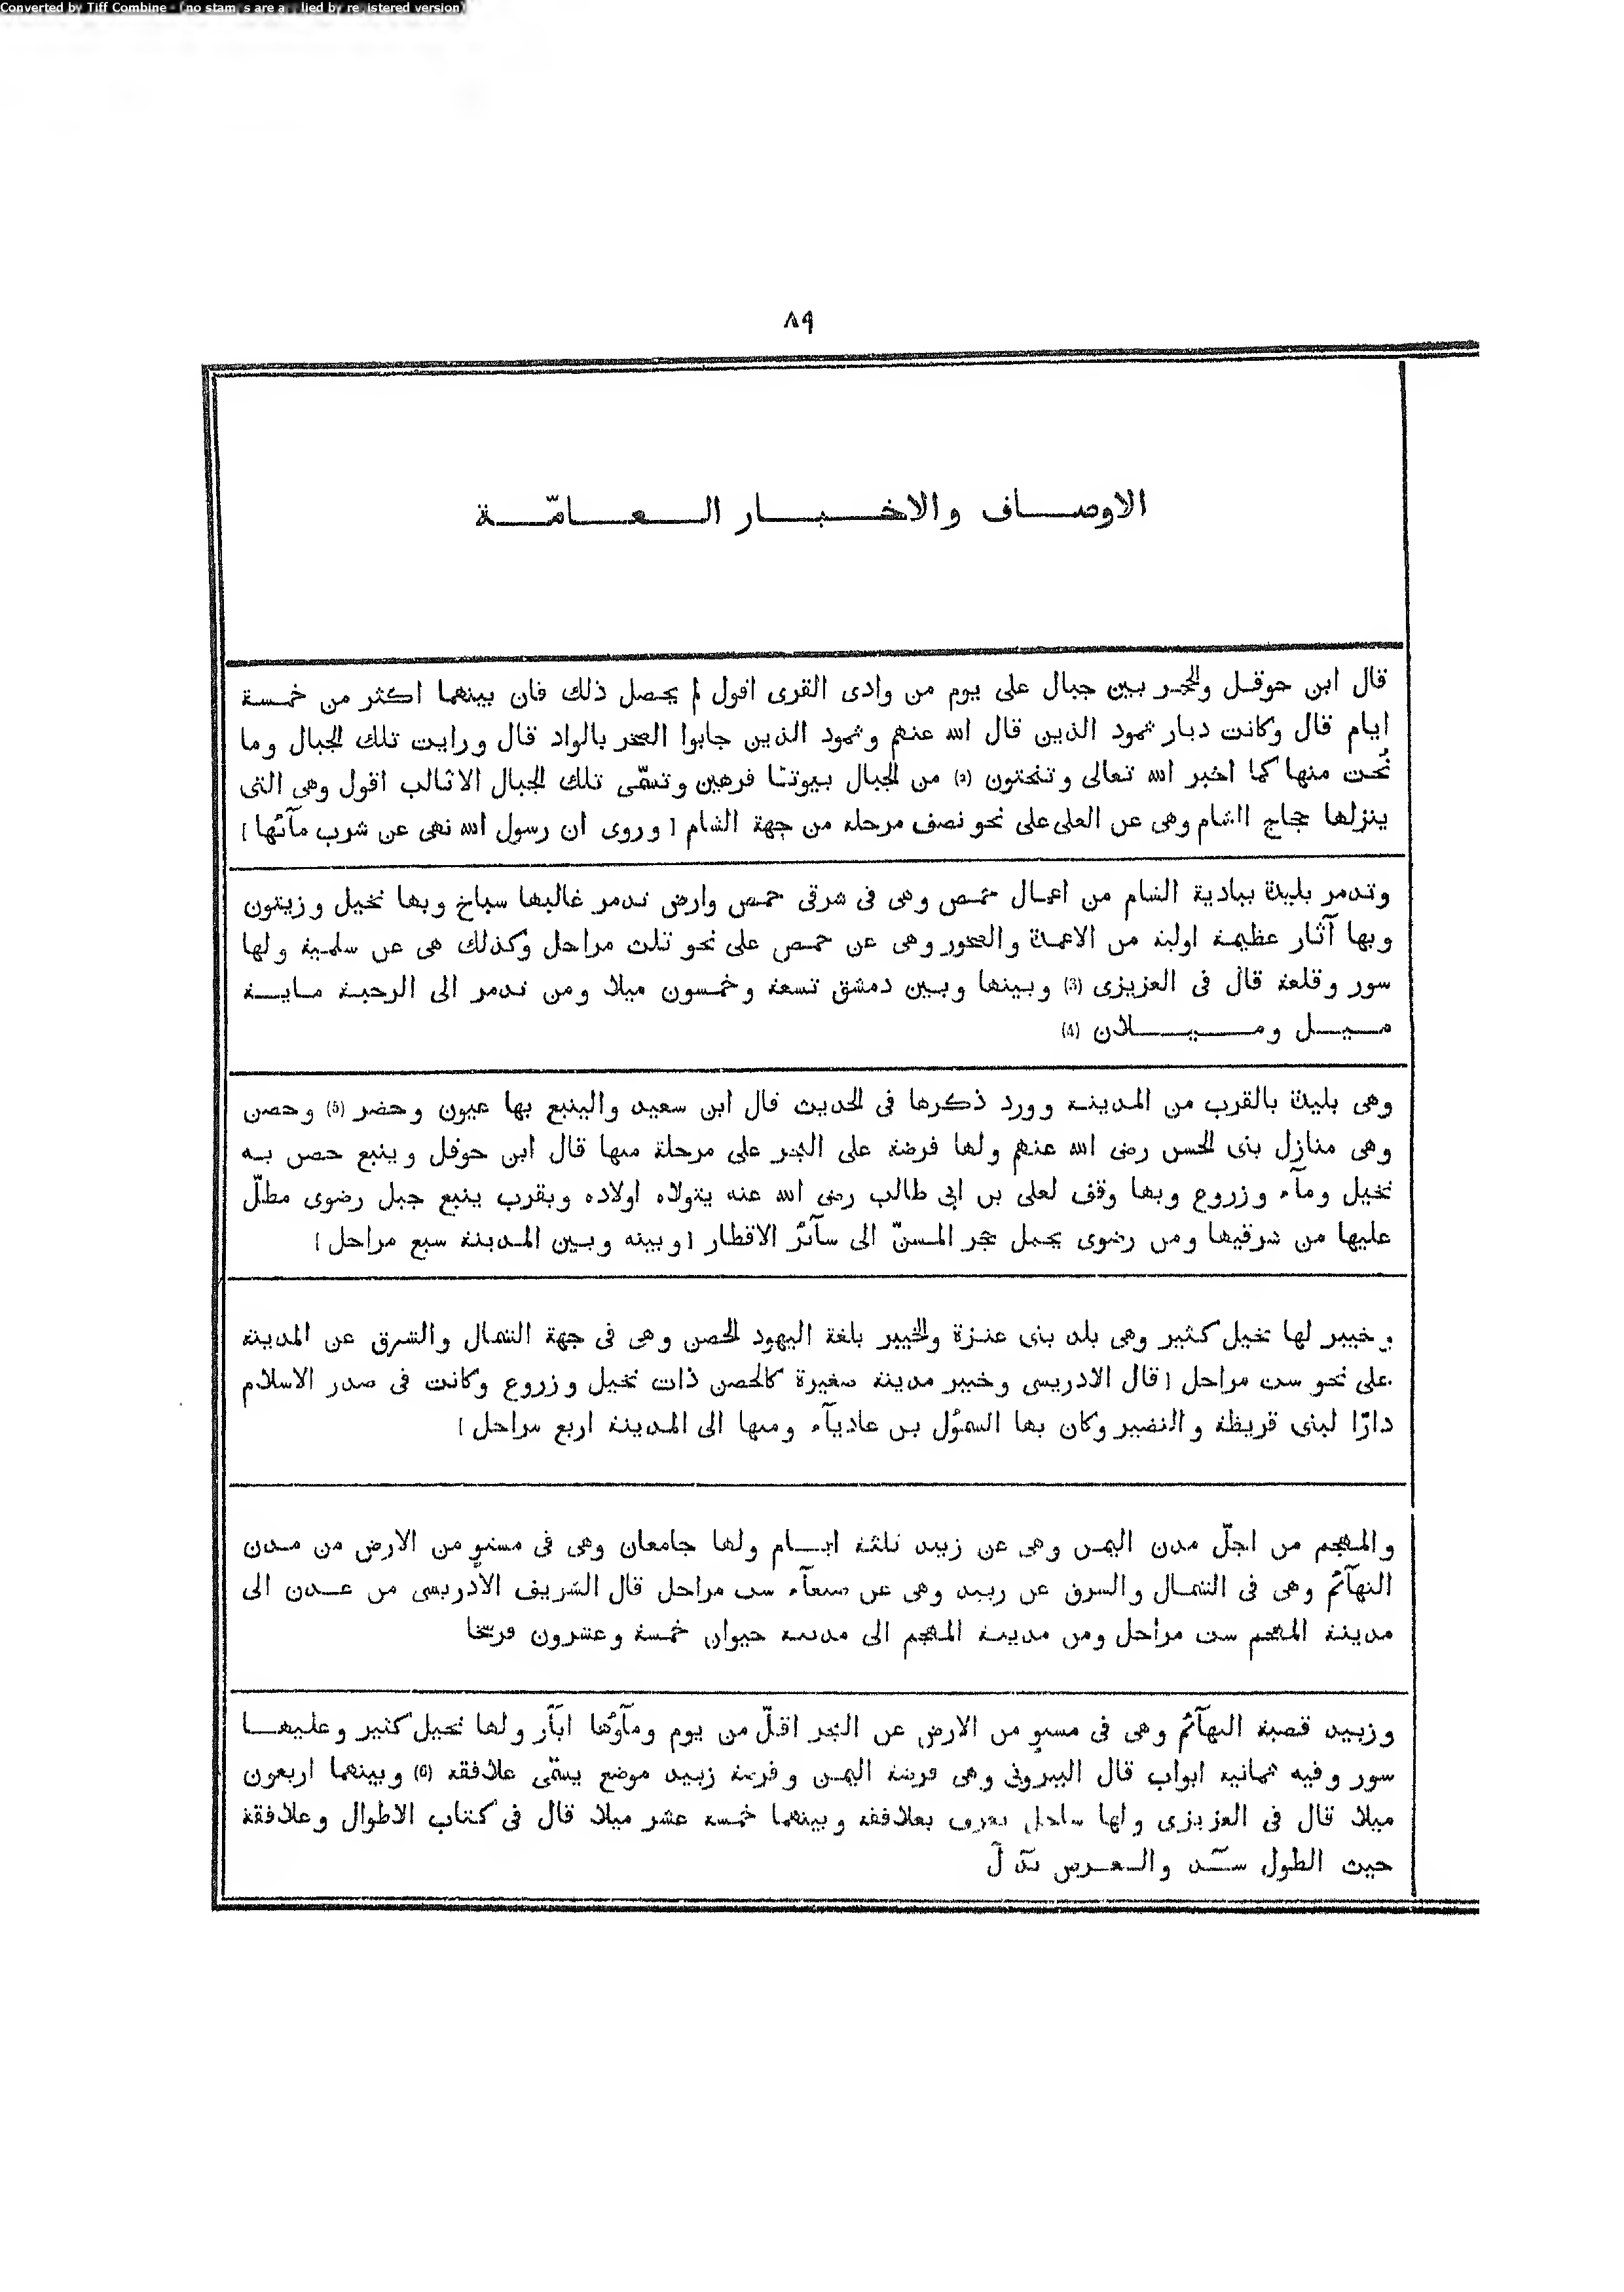 Converted by Tiff Combine - (no stamps are applied by registered version)
٨٩
الاوصاف والاخبار العامّة
قال ابن حوقل والحجر بين جبال على يوم من وادى القرى اقول لم يحصل ذلك فان بينهما اكثر من خمسة
ايام قال وكانت ديار ثمود الذين قال الله عنهم وثمود الذين جابوا الصخر بالواد قال ورايت تلك الجبال وما
نُحت منها كما اخبر الله تعالى وتنحتون (2) من الجبال بيوتًا فرهين وتسمّى تلك الجبال الاثالب اقول وهى التى
ينزلها حجاج الشام وهى عن العلى على نحو نصف مرحلة من جهة الشام [وروى ان رسول الله نهى عن شرب مآئها]
وتدمر بليدة ببادية الشام من اعمال حمص وهى فى شرقى حمص وارض تدمر غالبها سباخ وبها نخيل وزيتون
وبها آثار عظيمة اولية من الاعمدة والصخور وهى عن حمص على نحو ثلث مراحل وكذلك هى عن سلمية ولها
سور وقلعة قال فى العزيزى (3) وبينها وبين دمشق تسعة وخمسون ميلا ومن تدمر الى الرحبة ماية
ميل وميلان (4)
وهى بليدة بالقرب من المدينة وورد ذكرها فى الحديث قال ابن سعيد والينبع بها عيون وحضر (5) وحصن
وهى منازل بنى الحسن رضى الله عنهم ولها فرضة على البحر على مرحلة منها قال ابن حوقل وينبع حصن به
نخيل ومآء وزروع وبها وقف لعلى بن ابى طالب رضى الله عنه يتولاه اولاده وبقرب ينبع جبل رضوى مطلّ
عليها من شرقيها ومن رضوى يحمل حجر المسنّ الى سآئر الاقطار [وبينه وبين المدينة سبع مراحل]
وخيبر لها نخيل كثير وهى بلد بنى عنزة والخيبر بلغة اليهود الحصن وهى فى جهة الشمال والشرق عن المدينة
على نحو ست مراحل [قال الادريسى وخيبر مدينة صغيرة كالحصن ذات نخيل وزروع وكانت فى صدر الاسلام
دارًا لبنى قريظة والنضير وكان بها السموُل بن عاديآء ومنها الى المدينة اربع مراحل]
والمهجم من اجلّ مدن اليمن وهى عن زبيد ثلثة ايام ولها جامعان وهى فى مستوٍ من الارض من مدن
التهآئم وهى فى الشمال والشرق عن زبيد وهى عن صنعآء ست مراحل قال الشريف الادريسى من عدن الى
مدينة المهجم ست مراحل ومن مدينة المهجم الى مدينة حيوان خمسة وعشرون فرسخا
وزبيد قصبة التهآئم وهى فى مستوٍ من الارض عن البحر اقلّ من يوم ومآوُها ابآر ولها نخيل كثير وعليها
سور وفيه ثمانية ابواب قال البيرونى وهى فرضة اليمن وفرضة زبيد موضع يسمّى علافقة (6) وبينهما اربعون
ميلا قال فى العزيزى ولها ساحل يعرف بعلافقة وبينهما خمسة عشر ميلا قال فى كتاب الاطوال وعلافقة
حيث الطول والعرض